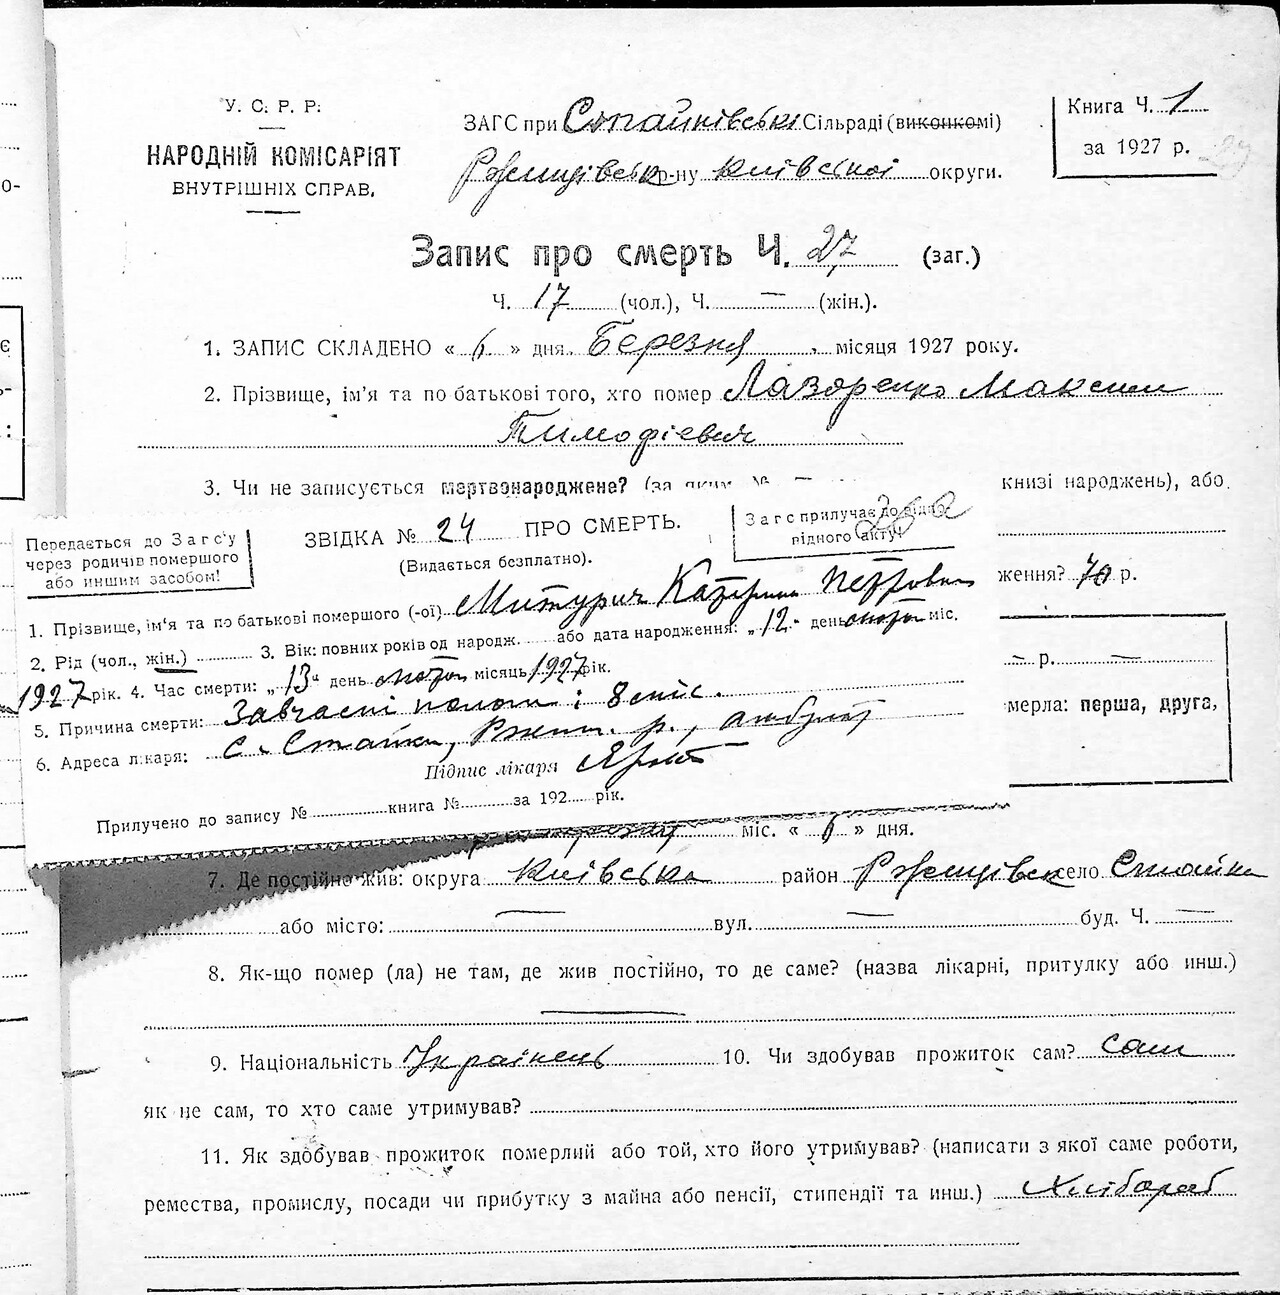 У. С. Р. Р.
НАРОДНІЙ КОМІСАРІЯТ
ВНУТРІШНІХ СПРАВ.
ЗАГС при Стайківські Сільраді (виконкомі)
Ржищівськ р-ну Київської округи.
Книга Ч. 1
за 1927 р.
Запис про смерть Ч. 27 (заг.)
Ч. 17 (чол.), Ч. — (жін.).
1. ЗАПИС СКЛАДЕНО « 6 » дня Березня місяця 1927 року.
2. Прізвище, ім'я та по батькові того, хто помер Лазоренко Максим
Тимофієвич
3. Чи не записується мертвонароджене? (за яким № — книзі народжень), або
ження? 70 р.
— р. —
мерла: перша, друга,
Передається до Загс'у
через родичів помершого
або иншим засобом!
ЗВІДКА № 24 ПРО СМЕРТЬ.
(Видається безплатно).
Загс прилучає до відпо-
відного акту!
1. Прізвище, ім'я та по батькові помершого (-ої) Митурич Катерина Петровна
2. Рід (чол., жін.) 3. Вік: повних років од народж. або дата народження: „12" день лютого міс.
1927 рік. 4. Час смерти: „13" день лютого місяць 1927 рік.
5. Причина смерти: Завчасні пологи; 8 міс.
6. Адреса лікаря: с. Стайки, Ржищ. р., амбулат
Підпис лікаря
Прилучено до запису № книга № за 192 рік.
міс. « 6 » дня.
7. Де постійно жив: округа Київська район Ржищівськ село Стайки
або місто: — вул. — буд. Ч. —
8. Як-що помер (ла) не там, де жив постійно, то де саме? (назва лікарні, притулку або инш.)
—
9. Національність Українець 10. Чи здобував прожиток сам? сам
як не сам, то хто саме утримував?
11. Як здобував прожиток померлий або той, хто його утримував? (написати з якої саме роботи,
ремества, промислу, посади чи прибутку з майна або пенсії, стипендії та инш.) Хлібороб